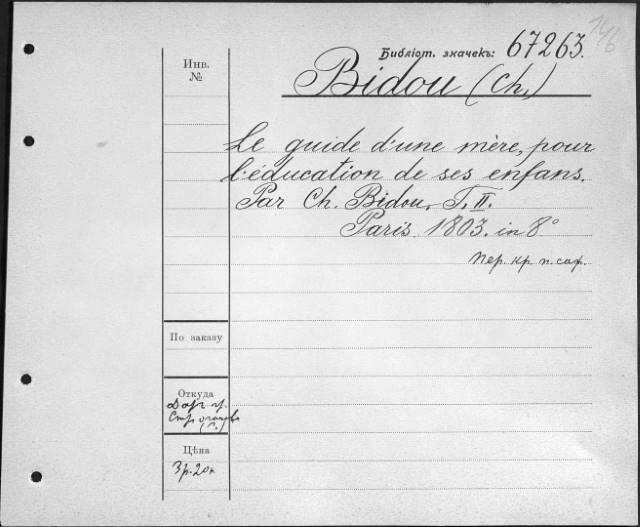 146
Библіот. значекъ: 67263.
Инв.
№
Bidou (Ch.)
Le guide d'une mère, pour
l'éducation de ses enfans.
Par Ch. Bidou. T. II.
Paris. 1803. in 8°
пер. кр. п. саф.
По заказу
Откуда
Даръ гр.
Строганова
(С.)
Цѣна
3 р. 20 к